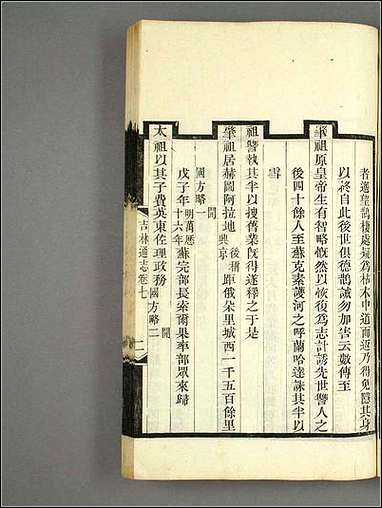 者遙望鵲棲處疑為枯木中道而返乃得免隱其身
以終自此後世俱德鵲誡勿加害云數傳至
肇祖原皇帝生有智略慨然以恢復為志計誘先世讐人之
後四十餘人至蘇克素護河之呼蘭哈達誅其半以
雪
祖讐執其半以搜舊業既得遂釋之于是
肇祖居赫圖阿拉地後稱興京距俄朵里城西一千五百餘里
開國方略一
戊子年明萬厯十六年蘇完部長索爾果率部眾來歸
太祖以其子費英東佐理政務開國方略二
吉林通志卷七
二